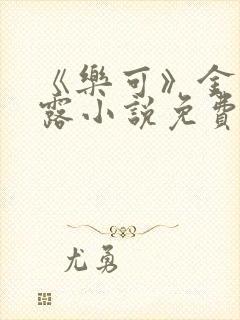 《樂可》金
露小說免費
尤勇